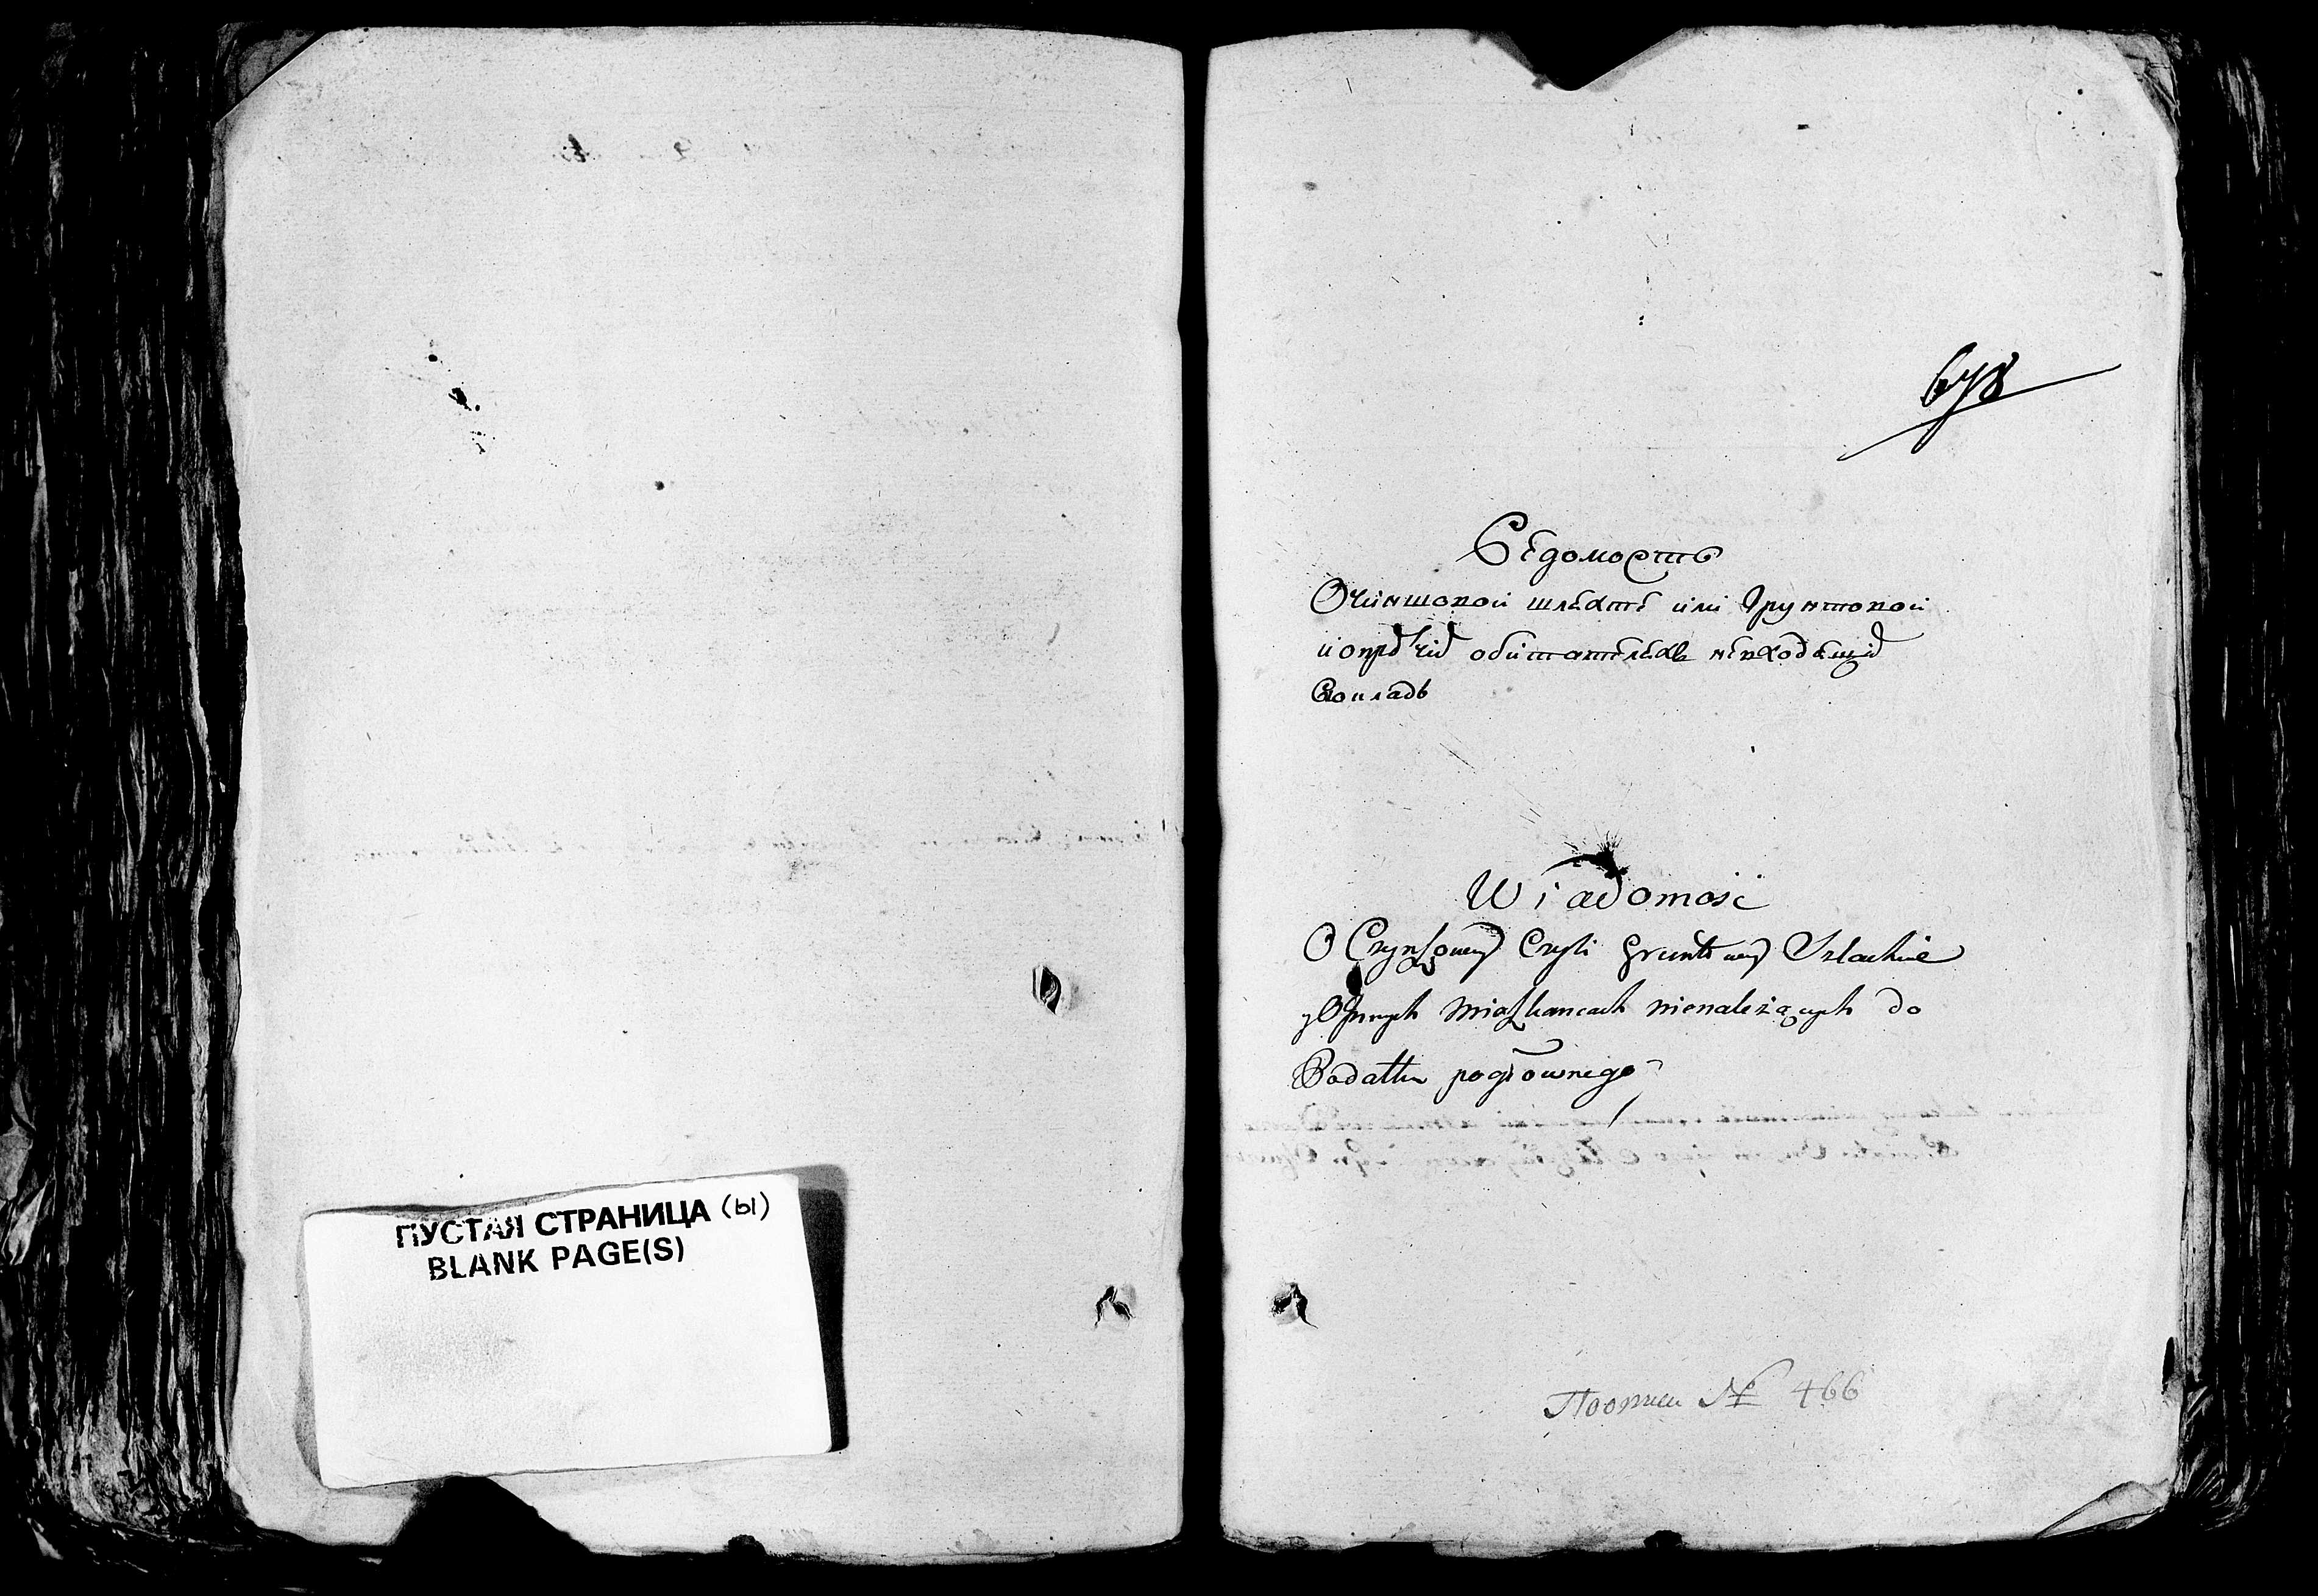 ПУСТАЯ СТРАНИЦА (ы)
BLANK PAGE(S)
678
Ведомость
Очиншовой шляхте или Грунтовой
и опрочих обитателях невходящих
Вокладъ
Wiadomość
O Czynszowey Czyli Gruntowey Szlachcie
y Jnnych Mieszkancach nienależących do
Podatku pogłownego
Поописи № 466